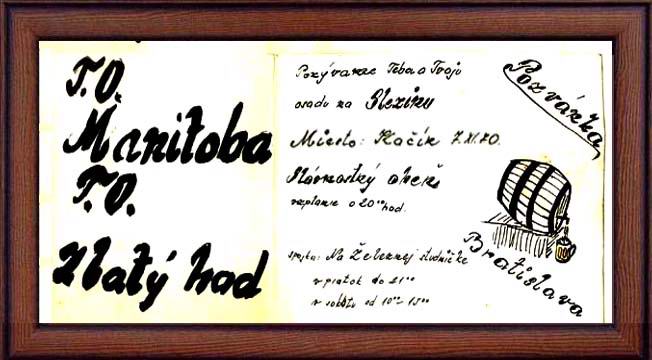 T.O.
Manitoba
T.O.
Zlatý had
Pozývame Teba a Tvoju
osadu na Slezinu
Miesto: Kačín 7.XI.70.
Slávnostný oheň
vzplanie o 20⁰⁰ hod.
spojka: Na Železnej studničke
v piatok do 21⁰⁰
v sobotu od 10⁰⁰ - 15⁰⁰
Pozvánka
Bratislava